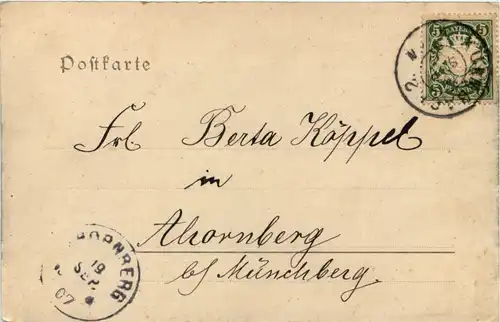 Postkarte
5 BAYERN 5
Frl. Berta Köppel
in
Ahornberg
b/ Münchberg.
HORNBERG
19
SEP.
07